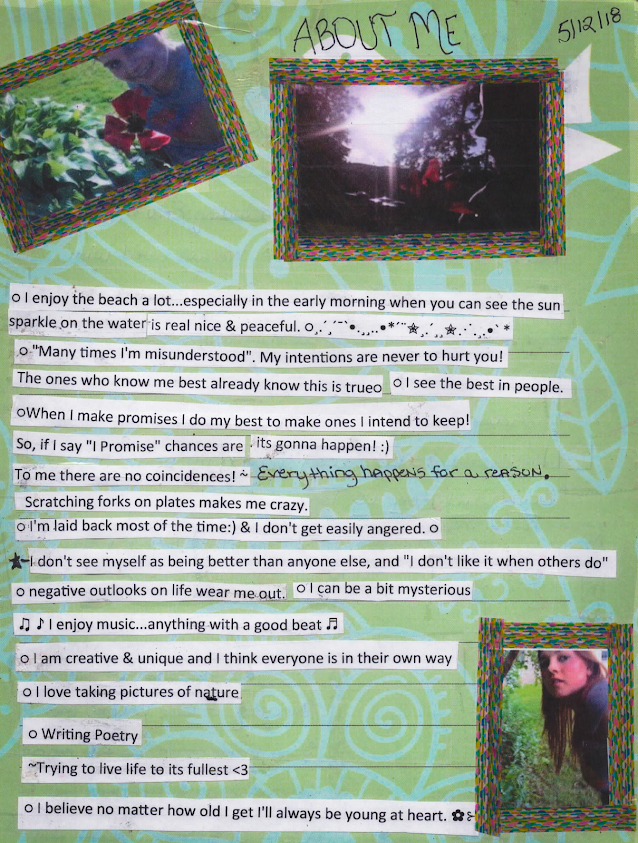 ABOUT ME
5/12/18
o I enjoy the beach a lot...especially in the early morning when you can see the sun
sparkle on the water is real nice & peaceful. o
o "Many times I'm misunderstood". My intentions are never to hurt you!
The ones who know me best already know this is trueo o I see the best in people.
oWhen I make promises I do my best to make ones I intend to keep!
So, if I say "I Promise" chances are its gonna happen! :)
To me there are no coincidences! ~ Everything happens for a reason.
Scratching forks on plates makes me crazy.
o I'm laid back most of the time:) & I don't get easily angered. o
★~I don't see myself as being better than anyone else, and "I don't like it when others do"
o negative outlooks on life wear me out. o I can be a bit mysterious
♫ ♪ I enjoy music...anything with a good beat ♬
o I am creative & unique and I think everyone is in their own way
o I love taking pictures of nature
o Writing Poetry
~Trying to live life to its fullest <3
o I believe no matter how old I get I'll always be young at heart. ✿